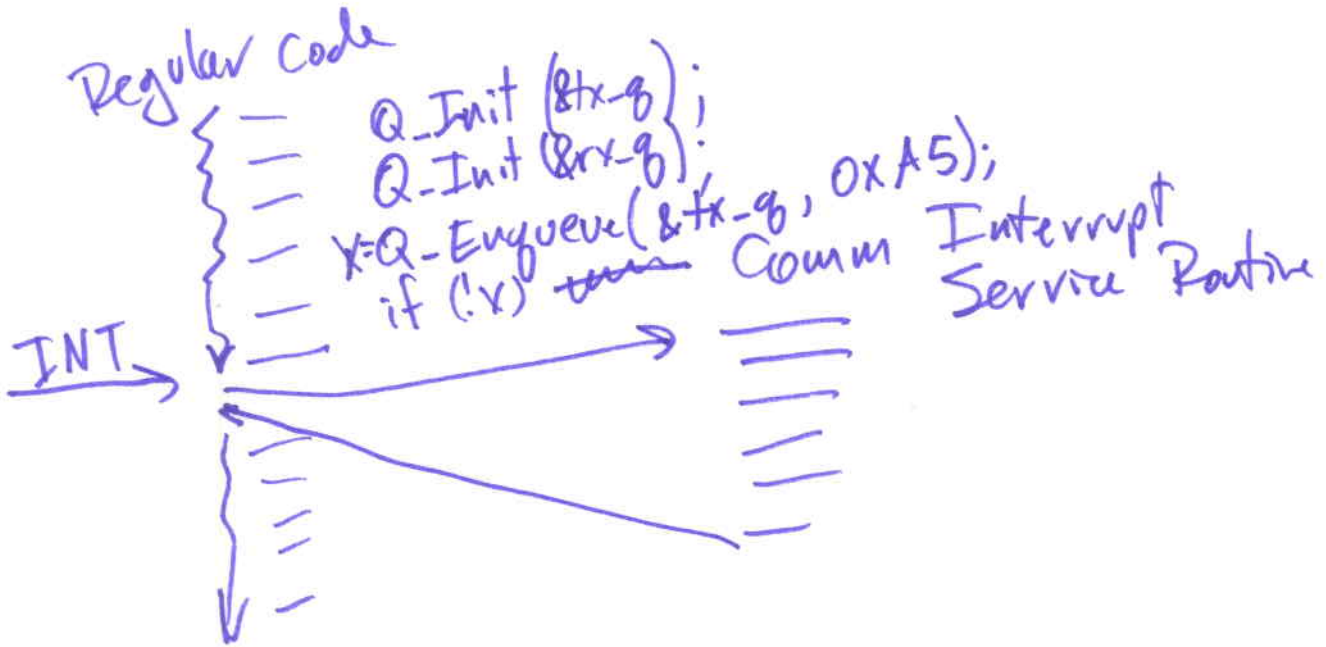 Regular Code
Q_Init (&tx_q);
Q_Init (&rx_q);
x=Q_Enqueue(&tx_q, 0xA5);
if (!x)
Comm Interrupt
Service Routine
INT